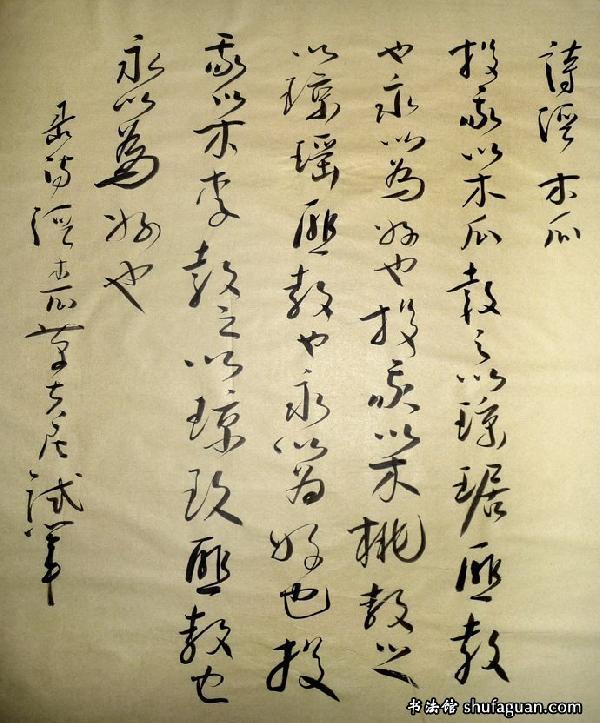 詩經 木瓜
投我以木瓜 報之以瓊琚 匪報
也永以為好也 投我以木桃 報之
以瓊瑤 匪報也 永以為好也 投
我以木李 報之以瓊玖 匪報也
永以為好也
录詩經木瓜 試筆
书法馆 shufaguan.com